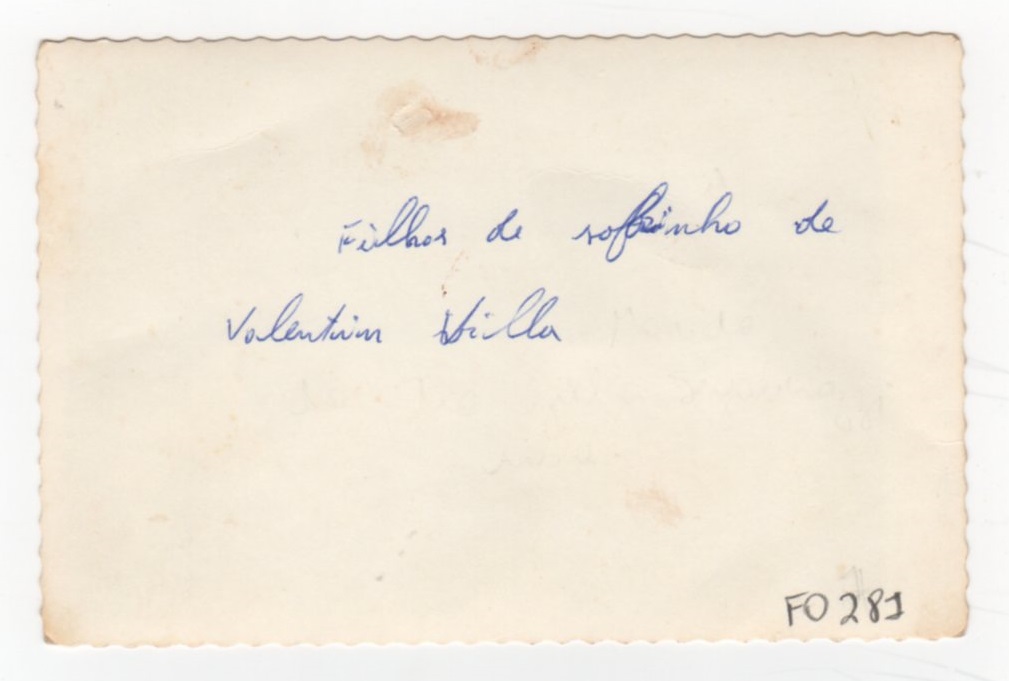 Filhos de sobrinho de
Valentim Villa
FO 281